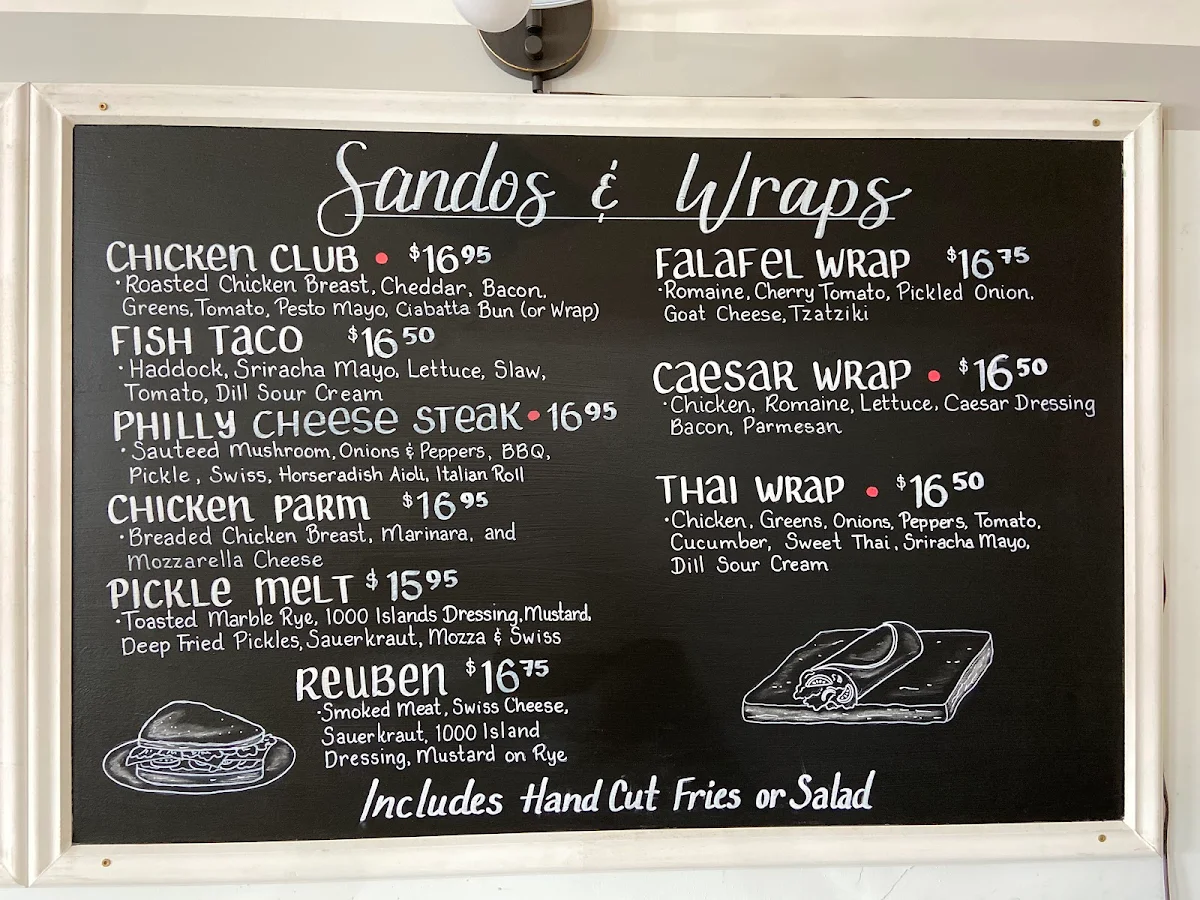 Sandos & Wraps
CHICKEN CLUB • $16.95
· Roasted Chicken Breast, Cheddar, Bacon,
Greens, Tomato, Pesto Mayo, Ciabatta Bun (or Wrap)
FISH TACO $16.50
· Haddock, Sriracha Mayo, Lettuce, Slaw,
Tomato, Dill Sour Cream
PHILLY CHEESE STEAK • 16.95
· Sauteed Mushroom, Onions & Peppers, BBQ,
Pickle, Swiss, Horseradish Aioli, Italian Roll
CHICKEN PARM $16.95
· Breaded Chicken Breast, Marinara, and
Mozzarella Cheese
PICKLE MELT $15.95
· Toasted Marble Rye, 1000 Islands Dressing, Mustard,
Deep Fried Pickles, Sauerkraut, Mozza & Swiss
REUBEN $16.75
· Smoked Meat, Swiss Cheese,
Sauerkraut, 1000 Island
Dressing, Mustard on Rye
FALAFEL WRAP $16.75
· Romaine, Cherry Tomato, Pickled Onion,
Goat Cheese, Tzatziki
CAESAR WRAP • $16.50
· Chicken, Romaine, Lettuce, Caesar Dressing
Bacon, Parmesan
THAI WRAP • $16.50
· Chicken, Greens, Onions, Peppers, Tomato,
Cucumber, Sweet Thai, Sriracha Mayo,
Dill Sour Cream
Includes Hand Cut Fries or Salad